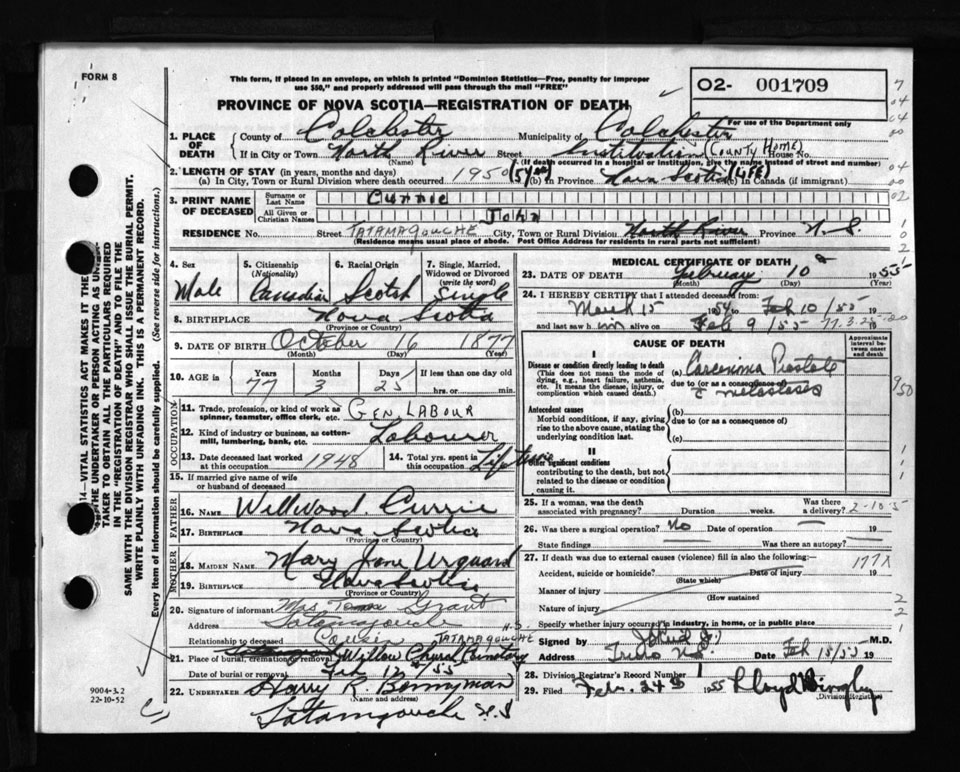 FORM 8
This form, if placed in an envelope, on which is printed "Dominion Statistics—Free, penalty for improper
use $50," and properly addressed will pass through the mail "FREE"
02- 001709
PROVINCE OF NOVA SCOTIA—REGISTRATION OF DEATH
For use of the Department only
1. PLACE OF DEATH County of Colchester Municipality of Colchester
If in City or Town North River Street Institution (COUNTY HOME) House No.
(Name) (If death occurred in a hospital or institution, give the name instead of street and number)
2. LENGTH OF STAY (in years, months and days)
(a) In City, Town or Rural Division where death occurred 1950 (5 yrs) (b) In Province Nova Scotia (LIFE) (c) In Canada (if immigrant)
3. PRINT NAME OF DECEASED Surname or Last Name Currie
All Given or Christian Names John
RESIDENCE No. Street TATAMAGOUCHE City, Town or Rural Division North River Province N.S.
(Residence means usual place of abode. Post Office Address for residents in rural parts not sufficient)
4. Sex Male
5. Citizenship (Nationality) Canadian
6. Racial Origin Scotch
7. Single, Married, Widowed or Divorced (write the word) Single
8. BIRTHPLACE Nova Scotia
(Province or Country)
9. DATE OF BIRTH October 16 1877
(Month) (Day) (Year)
10. AGE in Years 77 Months 3 Days 25 If less than one day old
hrs. or min.
OCCUPATION
11. Trade, profession, or kind of work as spinner, teamster, office clerk, etc. GEN. LABOUR
12. Kind of industry or business, as cotton-mill, lumbering, bank, etc. Labourer
13. Date deceased last worked at this occupation 1948
14. Total yrs. spent in this occupation Lifetime
15. If married give name of wife or husband of deceased
FATHER
16. NAME Wellwood Currie
17. BIRTHPLACE Nova Scotia
(Province or Country)
MOTHER
18. MAIDEN NAME Mary Jane Urquard
19. BIRTHPLACE Nova Scotia
(Province or Country)
20. Signature of informant Mrs Grant
Address Tatamagouche N.S.
Relationship to deceased Cousin TATAMAGOUCHE
21. Place of burial, cremation or removal Willow Church Cemetary
Date of burial or removal Feb 12/55
22. UNDERTAKER Harry R. Bonnyman
(Name and address)
Tatamgouche N.S
9004-3.2
22-10-52
MEDICAL CERTIFICATE OF DEATH
23. DATE OF DEATH February 10 1955
(Month) (Day) (Year)
24. I HEREBY CERTIFY that I attended deceased from
March 15 1954 to Feb 10/55
and last saw him alive on Feb 9/55 19
CAUSE OF DEATH
Approximate interval between onset and death
I
Disease or condition directly leading to death
(This does not mean the mode of dying, e.g., heart failure, asthenia, etc. It means the disease, injury, or complication which caused death.)
(a) Carcinoma Prostate
due to (or as a consequence of)
c metastases
Antecedent causes
Morbid conditions, if any, giving rise to the above cause, stating the underlying condition last.
(b)
due to (or as a consequence of)
(c)
II
Other significant conditions
contributing to the death, but not related to the disease or condition causing it.
25. If a woman, was the death associated with pregnancy? Duration weeks. Was there a delivery?
2-10-5
26. Was there a surgical operation? No Date of operation 19
State findings Was there an autopsy?
27. If death was due to external causes (violence) fill in also the following:
177X
Accident, suicide or homicide? Date of injury 19
(State which)
Manner of injury
(How sustained
Nature of injury
Specify whether injury occurred in industry, in home, or in public place
Signed by M.D.
Address Truro N.S. Date Feb 15/55 19
28. Division Registrar's Record Number 1
29. Filed Feb. 24 1955 Lloyd Bingley
Division Registrar
14—VITAL STATISTICS ACT MAKES IT THE
THE UNDERTAKER OR PERSON ACTING AS UN
TAKER TO OBTAIN ALL THE PARTICULARS REQUIRED
IN THE "REGISTRATION OF DEATH" AND TO FILE THE
SAME WITH THE DIVISION REGISTRAR WHO SHALL ISSUE THE BURIAL PERMIT.
WRITE PLAINLY WITH UNFADING INK. THIS IS A PERMANENT RECORD.
Every item of information should be carefully supplied. (See reverse side for instructions.)